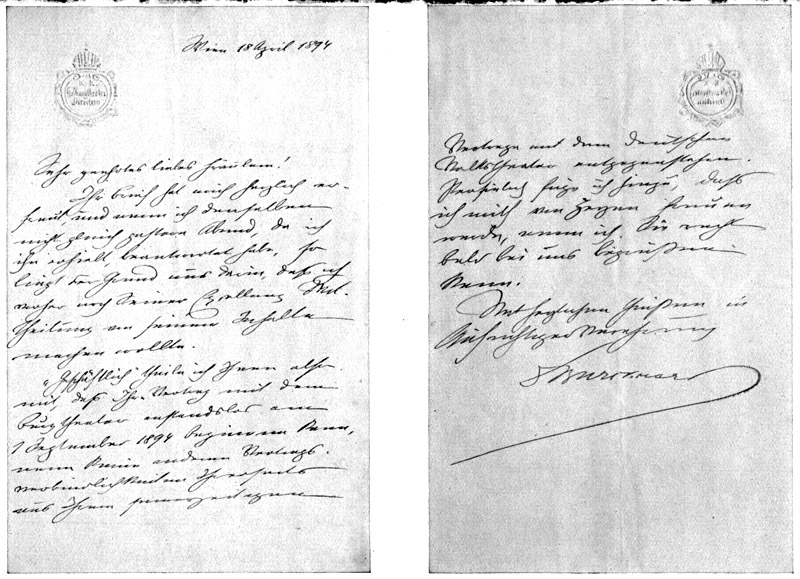 Wien 18 April 1894
K. K.
Hofburgtheater
Direction
Sehr geehrtes liebes Fräulein!
Ihr Brief hat mich herzlich er-
freut und wenn ich denselben
nicht gleich gestern Abend, da ich
ihn erhielt beantwortet habe, so
liegt der Grund nur darin, daß ich
vorher noch Seiner Exzellenz Mit-
theilung von seinem Inhalte
machen wollte.
Geschäftlich theile ich Ihnen also
mit, daß Ihr Vertrag mit dem
Burgtheater anstandslos am
1 September 1894 beginnen kann,
wenn keine anderen Vertrags-
verbindlichkeiten Ihrerseits
aus Ihrem
Vertrage mit dem Deutschen
Volkstheater entgegenstehen.
Persönlich füge ich hinzu, daß
ich mich von Herzen freuen
werde, wenn ich Sie recht
bald bei uns begrüßen
kann.
Mit herzlichen Grüßen in
aufrichtiger Verehrung
Burckhard